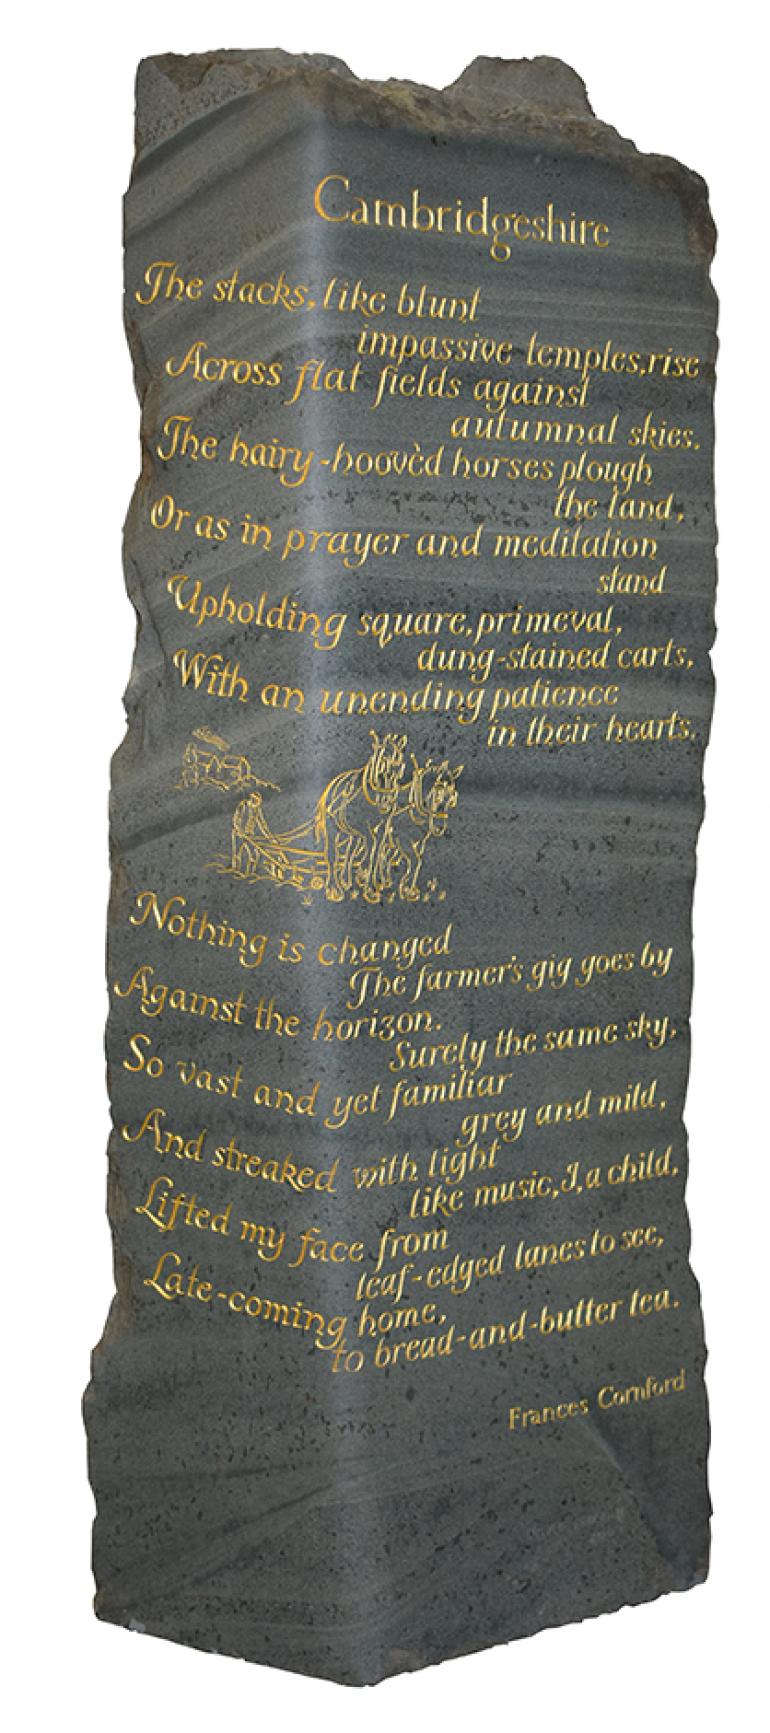 Cambridgeshire
The stacks, like blunt
impassive temples, rise
Across flat fields against
autumnal skies.
The hairy-hoovèd horses plough
the land,
Or as in prayer and meditation
stand
Upholding square, primeval,
dung-stained carts,
With an unending patience
in their hearts.
Nothing is changed
The farmer's gig goes by
Against the horizon.
Surely the same sky,
So vast and yet familiar
grey and mild,
And streaked with light
like music, I, a child,
Lifted my face from
leaf-edged lanes to see,
Late-coming home,
to bread-and-butter tea.
Frances Cornford